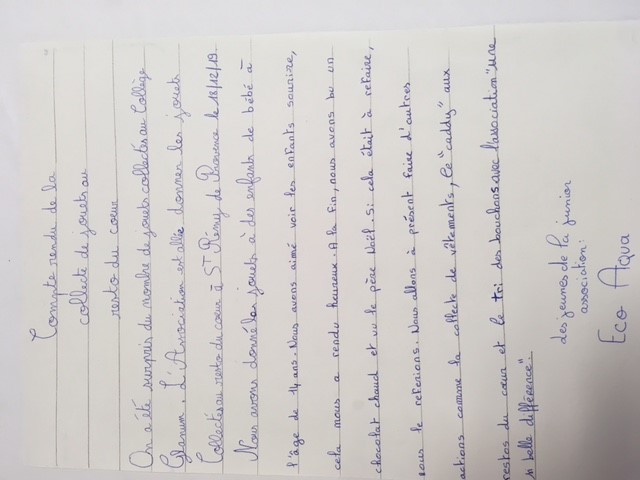 Compte rendu de la
collecte de jouets au
resto du cœur
On a été surpris du nombre de jouets collectés au Collège
Glanum. L'Association est allée donner les jouets
collectés au resto du cœur à St Rémy de Provence le 18/12/19
Nous avons donné les jouets à des enfants de bébé à
l'âge de 14 ans. Nous avons aimé voir les enfants sourire,
cela nous a rendu heureux. A la fin, nous avons bu un
chocolat chaud et vu le père Noël. Si cela était à refaire,
nous le referions. Nous allons à présent faire d'autres
actions comme la collecte de vêtements, le "caddy" aux
restos du cœur et le tri des bouchons avec l'association "une
si belle différence".
les jeunes de la junior
association:
Eco Aqua